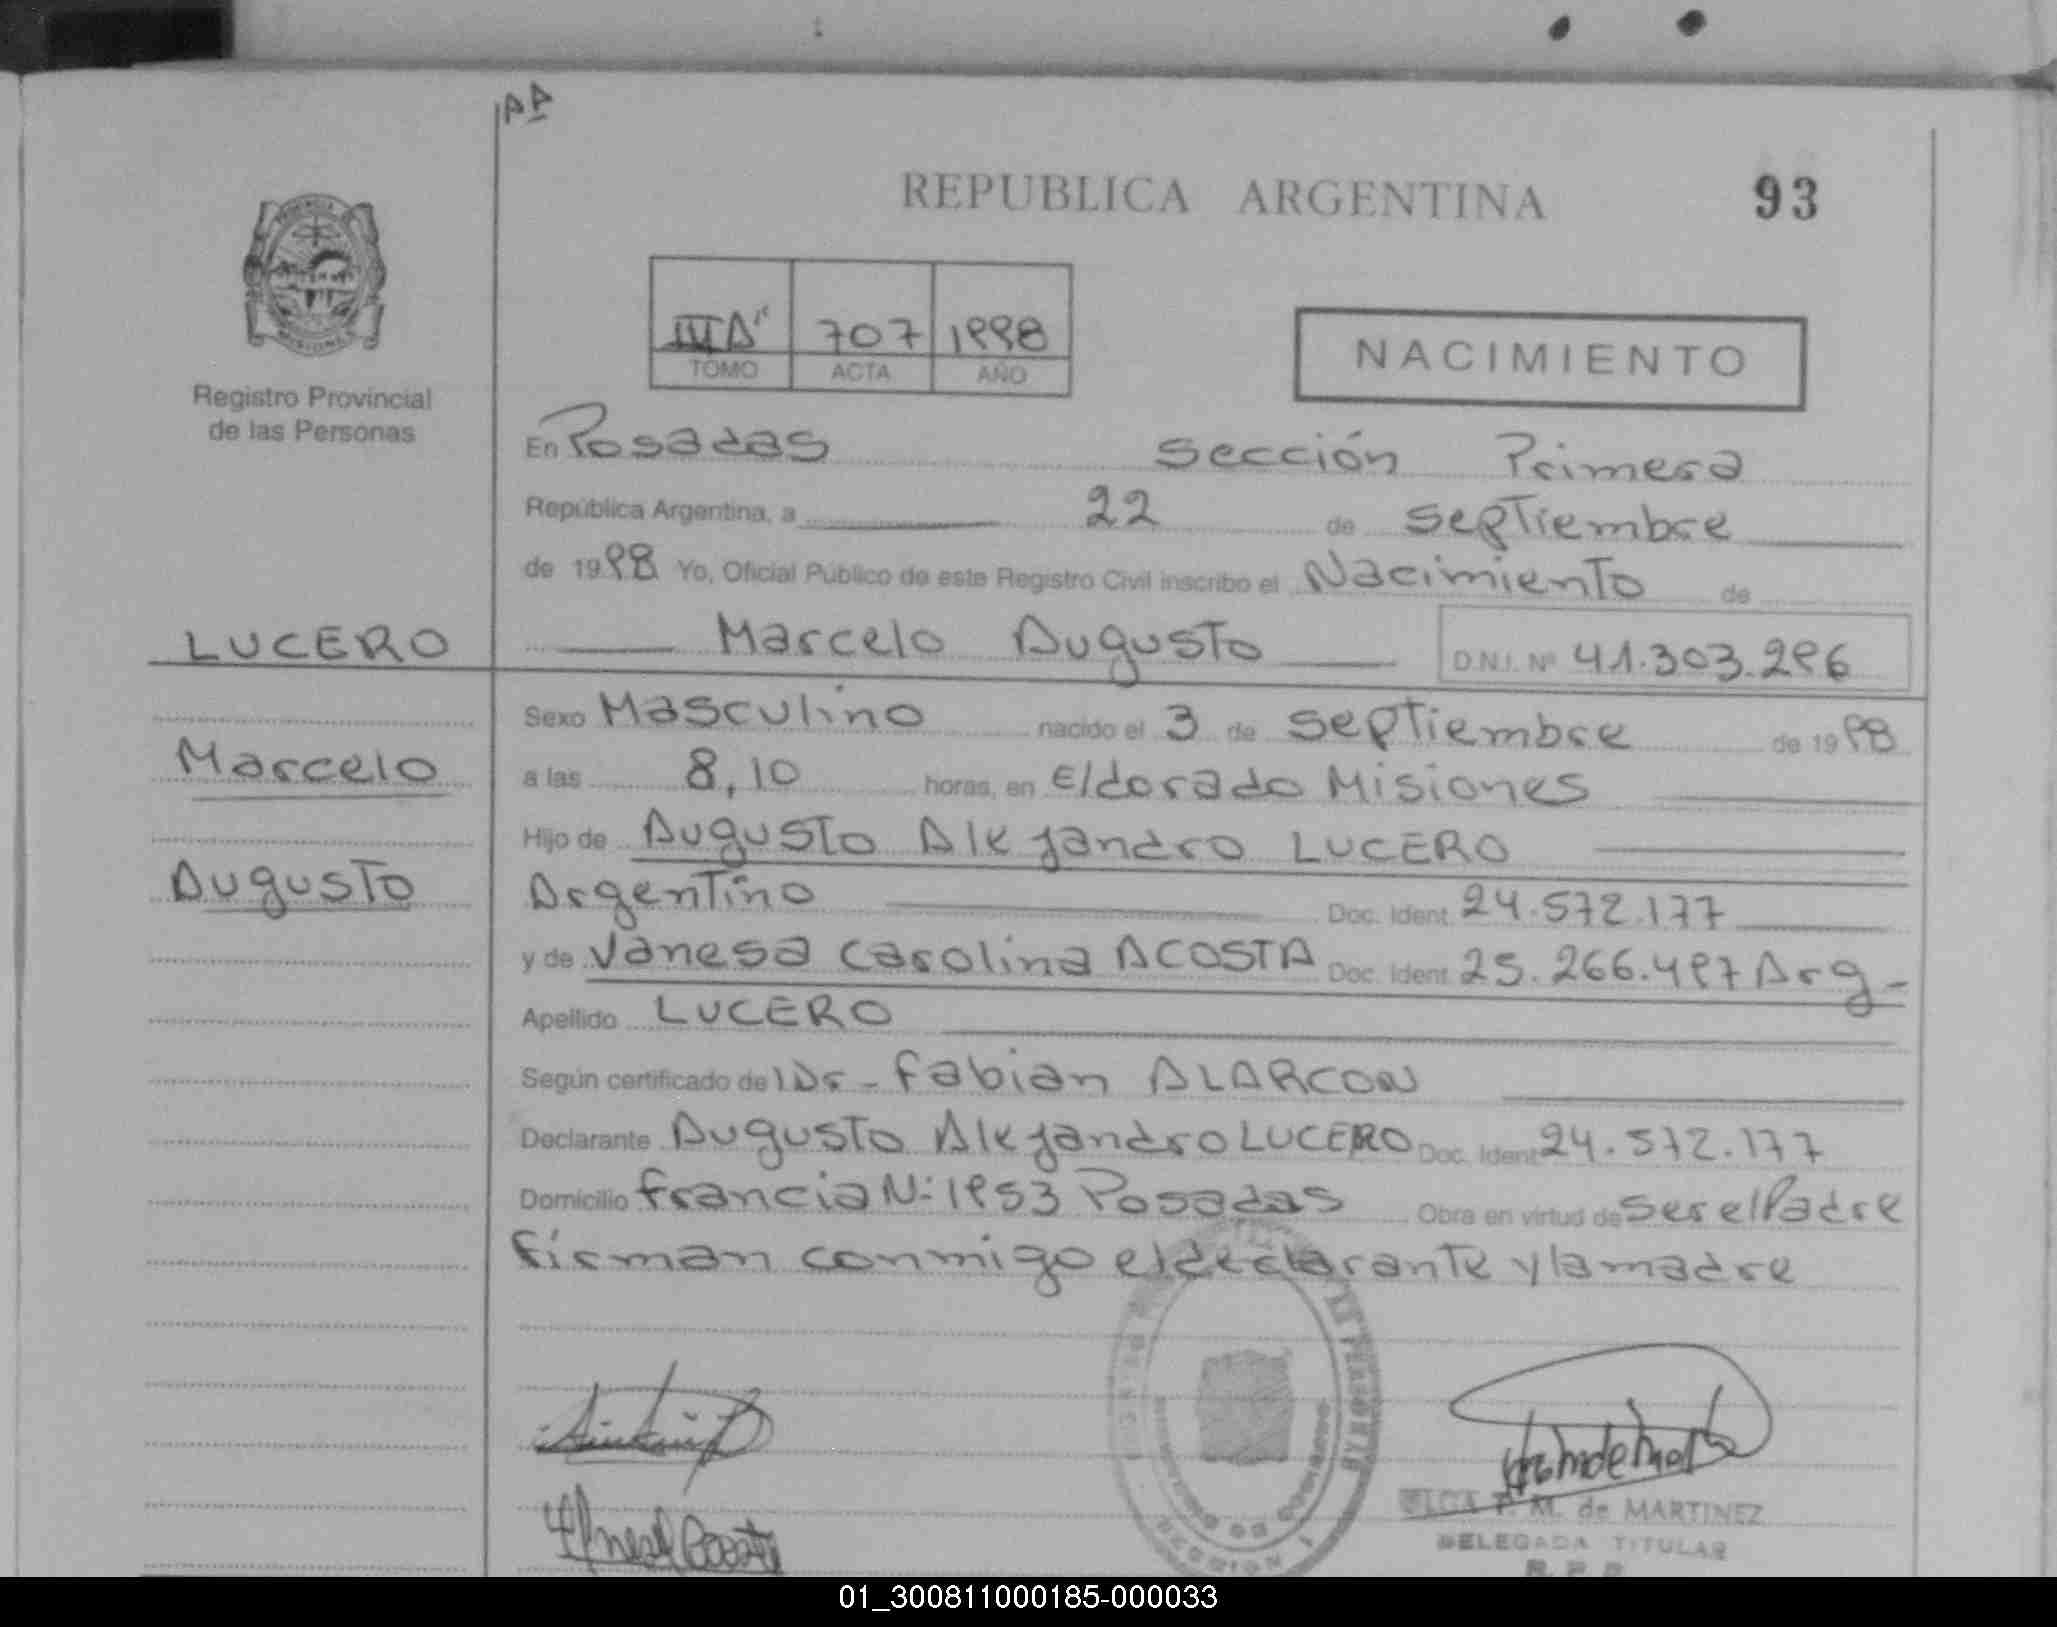 AA
REPUBLICA ARGENTINA
93
707 1998
TOMO ACTA AÑO
NACIMIENTO
Registro Provincial
de las Personas
En Posadas sección Primera
República Argentina, a 22 de septiembre
de 1998 Yo, Oficial Público de este Registro Civil inscribo el Nacimiento de
LUCERO
Marcelo Augusto D.N.I. Nº 41.303.296
Sexo Masculino nacido el 3 de septiembre de 1998
Marcelo
a las 8,10 horas, en Eldorado Misiones
Hijo de Augusto Alejandro LUCERO
Augusto
Argentino Doc. Ident. 24.572.177
y de Vanesa Carolina ACOSTA Doc. Ident. 25.266.497 Arg-
Apellido LUCERO
Según certificado del Dr- Fabian ALARCON
Declarante Augusto Alejandro LUCERO Doc. Ident 24.572.177
Domicilio Francia N: 1953 Posadas Obra en virtud de ser el Padre
firman conmigo el declarante y la madre
P. M. de MARTINEZ
DELEGADA TITULAR
01_300811000185-000033